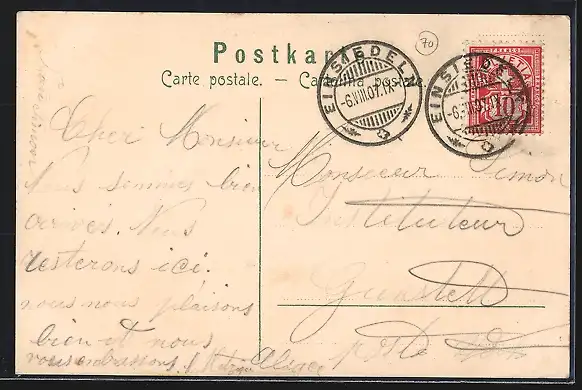 Postkarte.
Carte postale. — Cartolina postale.
70
EINSIEDELN
-6.VIII.07.IX
EINSIEDELN
-6.VIII.07.IX
FRANCO
HELVETIA
10
Cher Monsieur
Nous sommes bien
arrivés. Nous
resterons ici.
nous nous plaisons
bien et nous
vous embrassons.
Monsieur Simon
Instituteur
Alsace